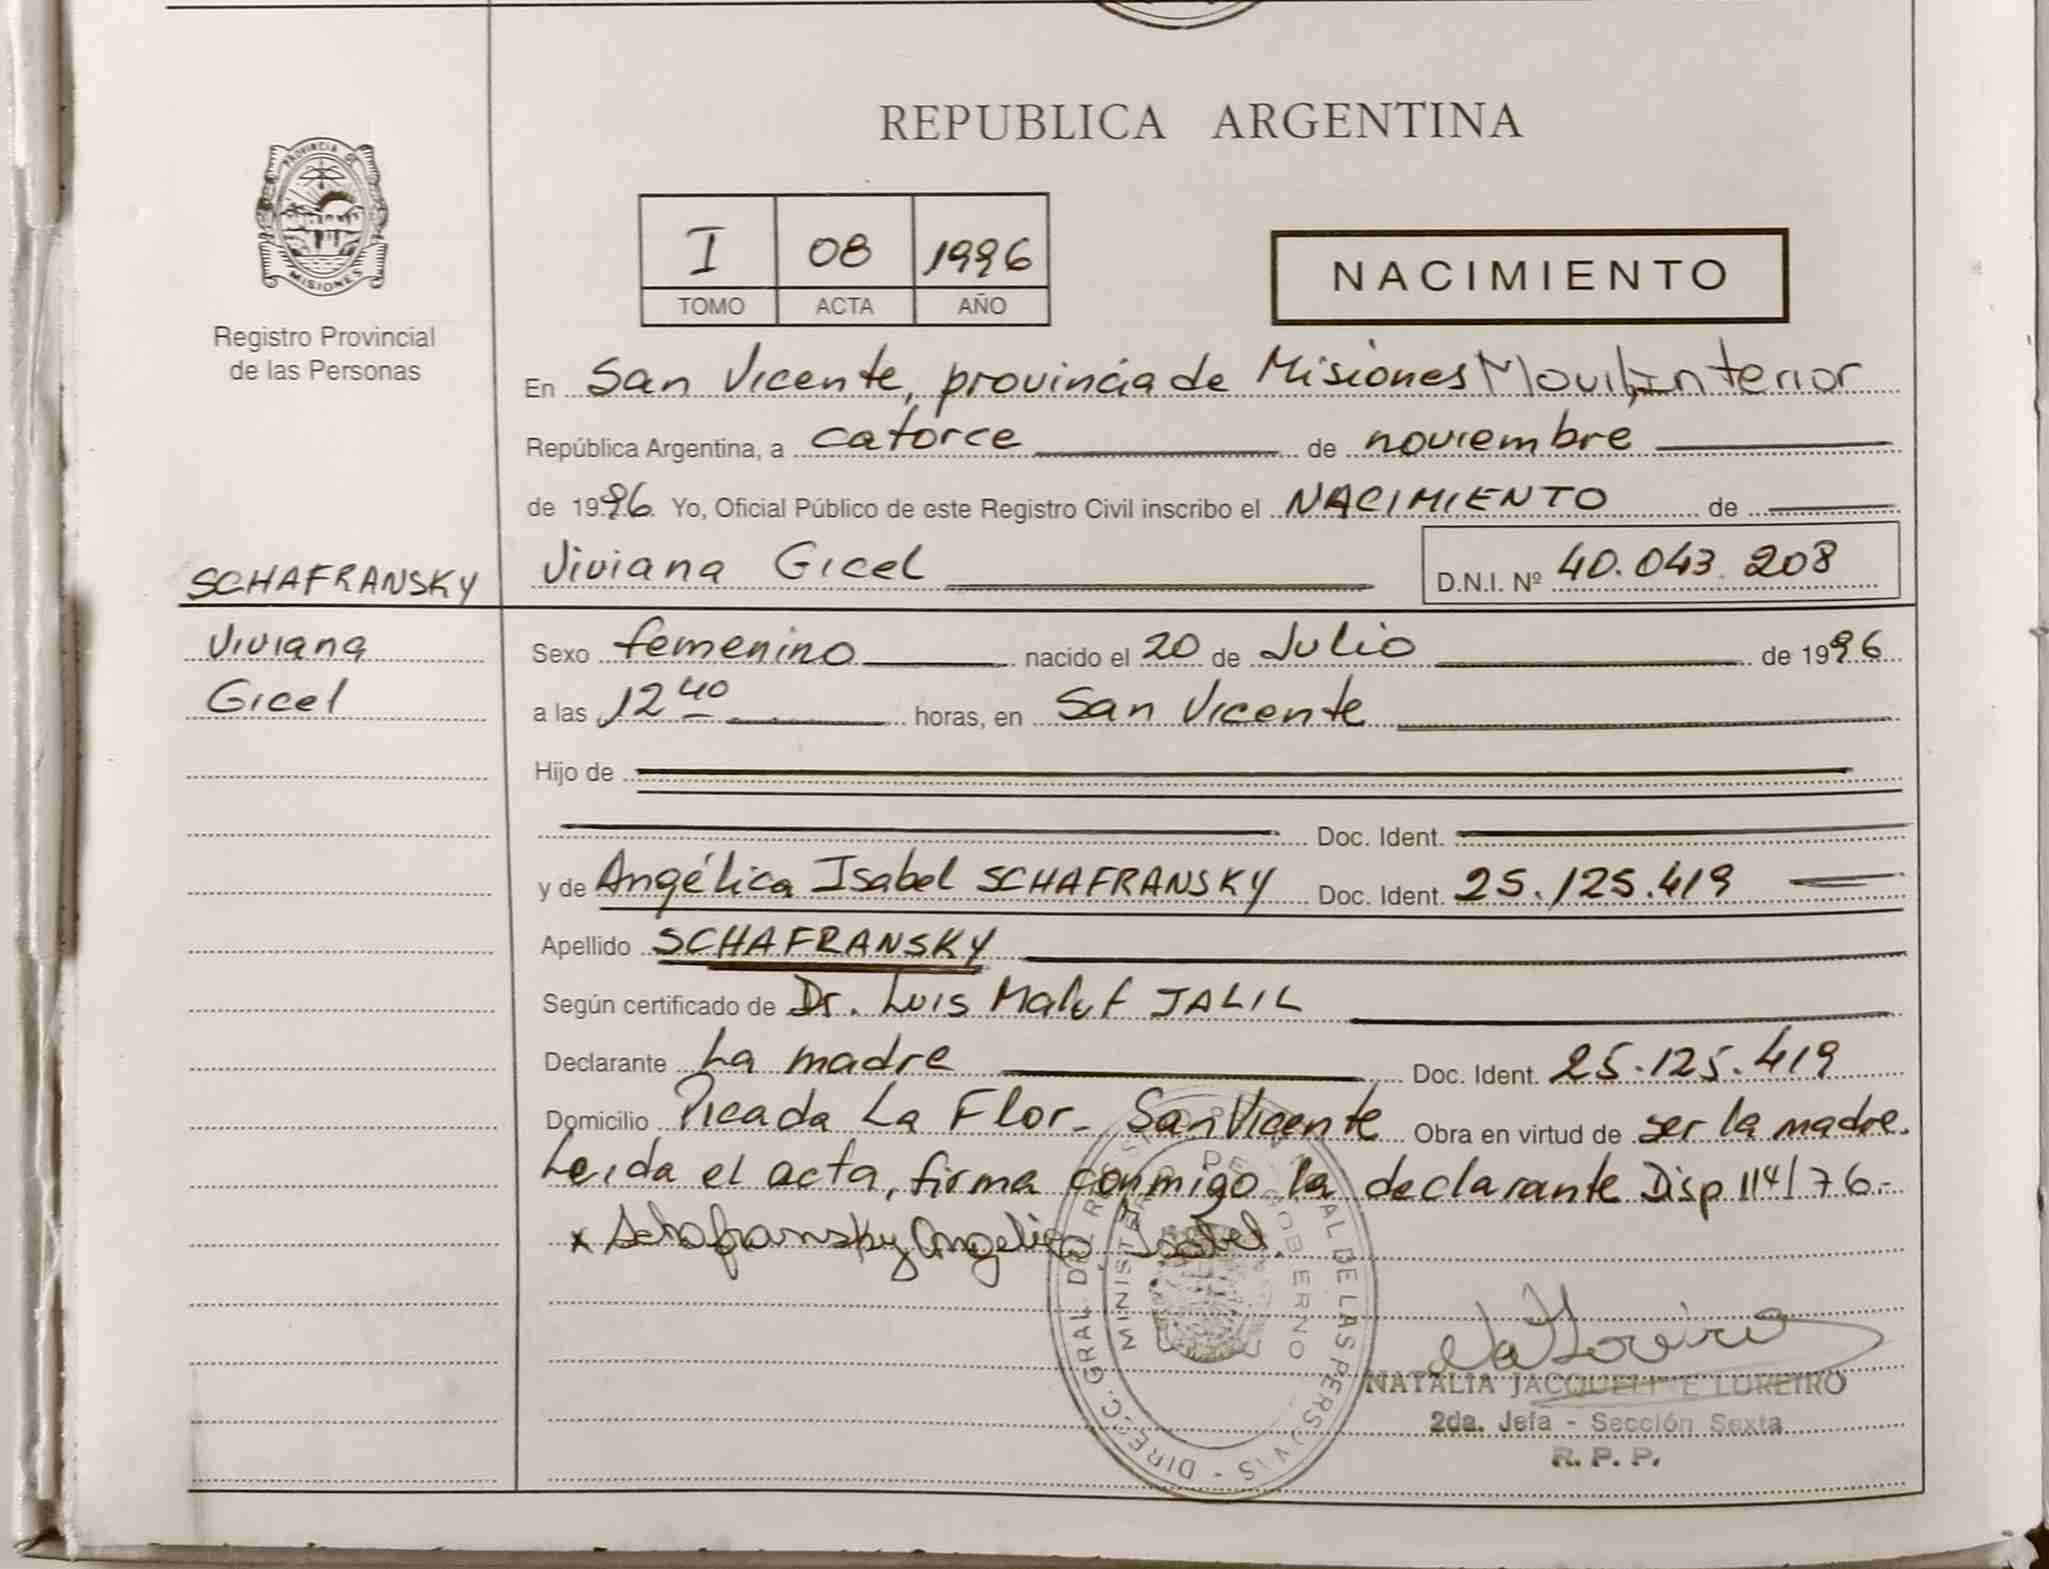 REPUBLICA ARGENTINA
PROVINCIA DE MISIONES
Registro Provincial
de las Personas
I 08 1996
TOMO ACTA AÑO
NACIMIENTO
En San Vicente, provincia de Misiones Movil Interior
República Argentina, a catorce de noviembre
de 1996 Yo, Oficial Público de este Registro Civil inscribo el NACIMIENTO de
SCHAFRANSKY
Viviana Gicel D.N.I. Nº 40.043.208
Viviana
Gicel
Sexo femenino nacido el 20 de Julio de 1996
a las 12 40 horas, en San Vicente
Hijo de
Doc. Ident.
y de Angélica Isabel SCHAFRANSKY Doc. Ident. 25.125.419
Apellido SCHAFRANSKY
Según certificado de Dr. Luis Maluf JALIL
Declarante La madre Doc. Ident. 25.125.419
Domicilio Picada La Flor - San Vicente Obra en virtud de ser la madre.
Leida el acta, firma conmigo la declarante Disp 114/76.-
x Schafransky Angelica Isabel.
MINISTERIO DE GOBIERNO
NATALIA JACQUELINE LOREIRO
2da. Jefa - Sección Sexta
R. P. P.